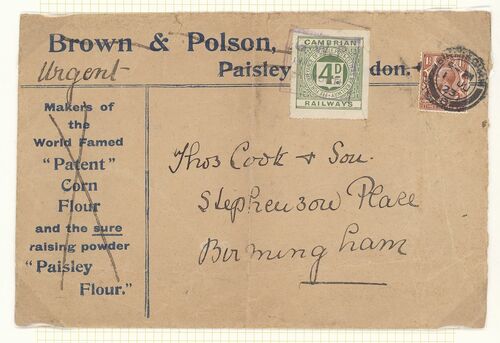 Brown & Polson,
Paisley
don.
Urgent
CAMBRIAN
4D
RAILWAYS
Makers of
the
World Famed
"Patent"
Corn
Flour
and the sure
raising powder
"Paisley
Flour."
Thos Cook & Son.
Stephenson Place
Birmingham